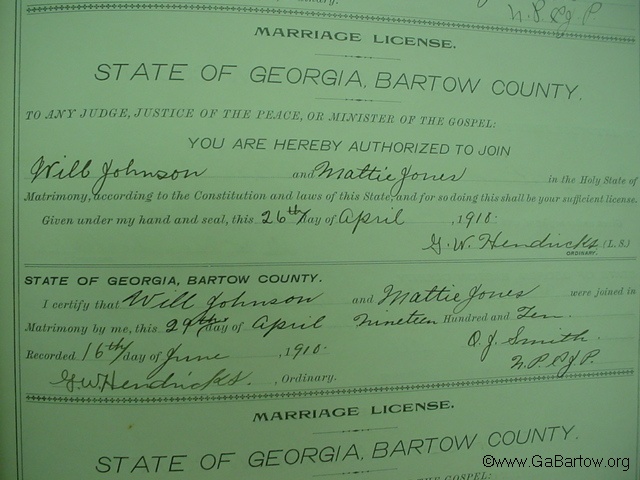 N. P. & J. P.
MARRIAGE LICENSE.
STATE OF GEORGIA, BARTOW COUNTY.
TO ANY JUDGE, JUSTICE OF THE PEACE, OR MINISTER OF THE GOSPEL:
YOU ARE HEREBY AUTHORIZED TO JOIN
Will Johnson and Mattie Jones in the Holy State of
Matrimony, according to the Constitution and laws of this State, and for so doing this shall be your sufficient license.
Given under my hand and seal, this 26th day of April, 1910.
G. W. Hendricks, (L. S.)
ORDINARY.
STATE OF GEORGIA, BARTOW COUNTY.
I certify that Will Johnson and Mattie Jones were joined in
Matrimony by me, this 29th day of April Nineteen Hundred and Ten.
Recorded 16th day of June, 1910. O. J. Smith
G. W. Hendricks., Ordinary. N. P. & J. P.
MARRIAGE LICENSE.
STATE OF GEORGIA, BARTOW COUNTY.
THE GOSPEL:
©www.GaBartow.org